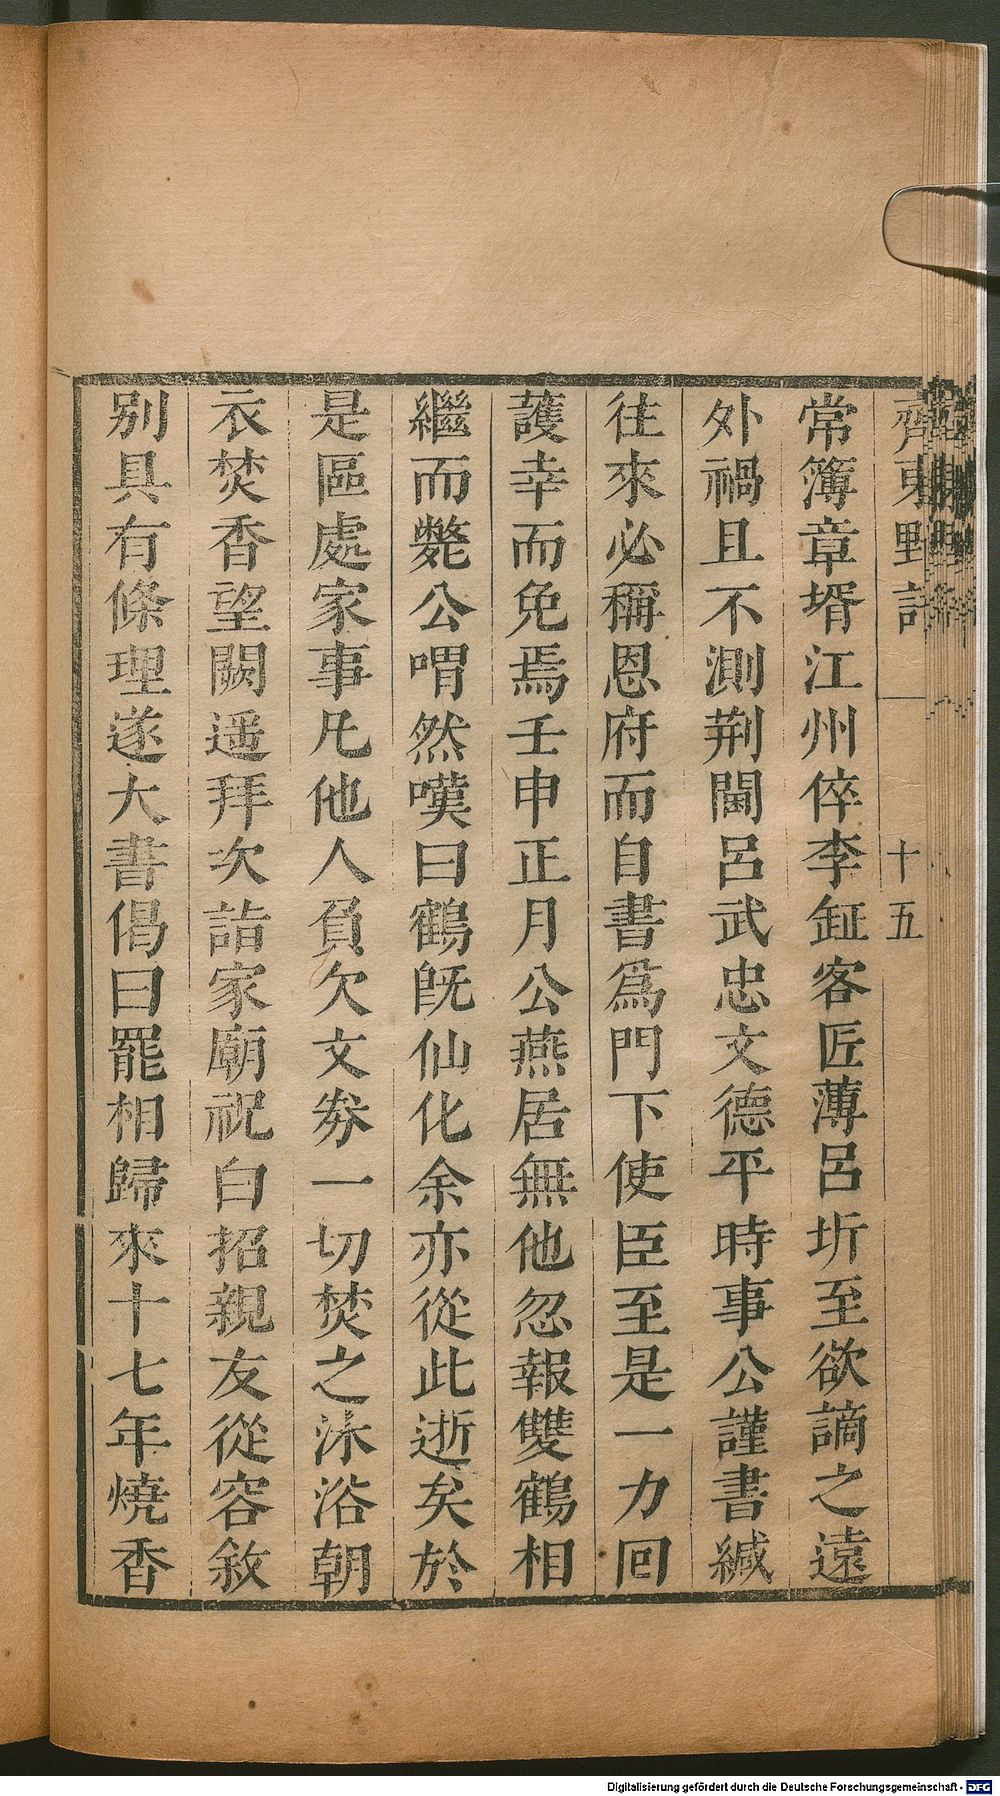 齊東野語
十五
常簿章壻江州倅李鉦客匠薄呂圻至欲謫之遠
外禍且不測荆閫呂武忠文德平時事公謹書緘
往來必稱恩府而自書爲門下使臣至是一力回
護幸而免焉壬申正月公燕居無他忽報雙鶴相
繼而斃公喟然嘆曰鶴旣仙化余亦從此逝矣於
是區處家事凡他人負欠文劵一切焚之沐浴朝
衣焚香望闕遥拜次詣家廟祝白招親友從容敘
别具有條理遂大書偈曰罷相歸來十七年燒香
Digitalisierung gefördert durch die Deutsche Forschungsgemeinschaft - DFG